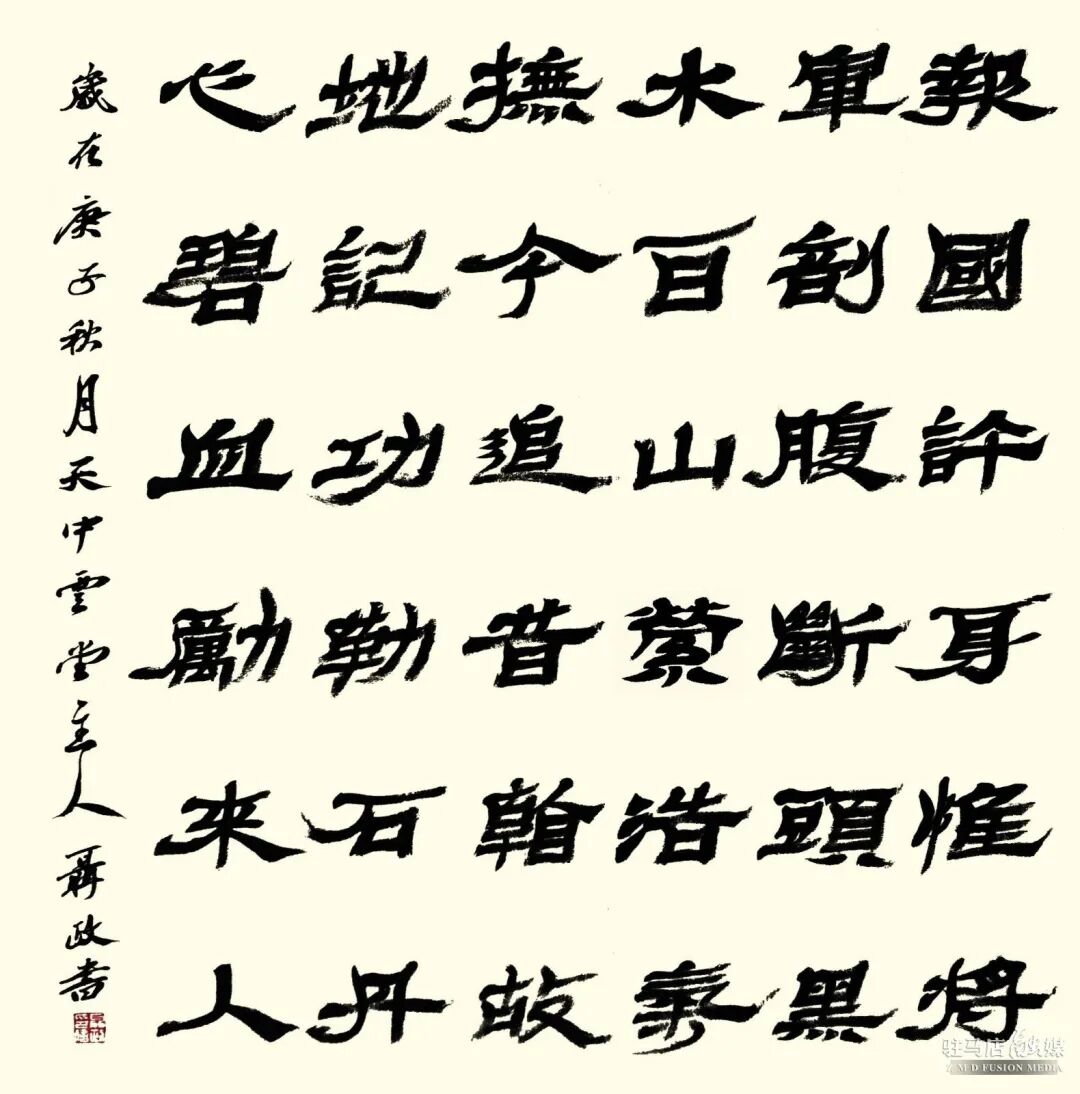 報國許身惟將
軍剖腹斷頭黑
水百山縈浩氣
撫今追昔翰故
地記功勒石丹
心碧血勵來人
歲在庚子秋月天中雲堂主人聶政書
驻马店融媒
Z M D FUSION MEDIA